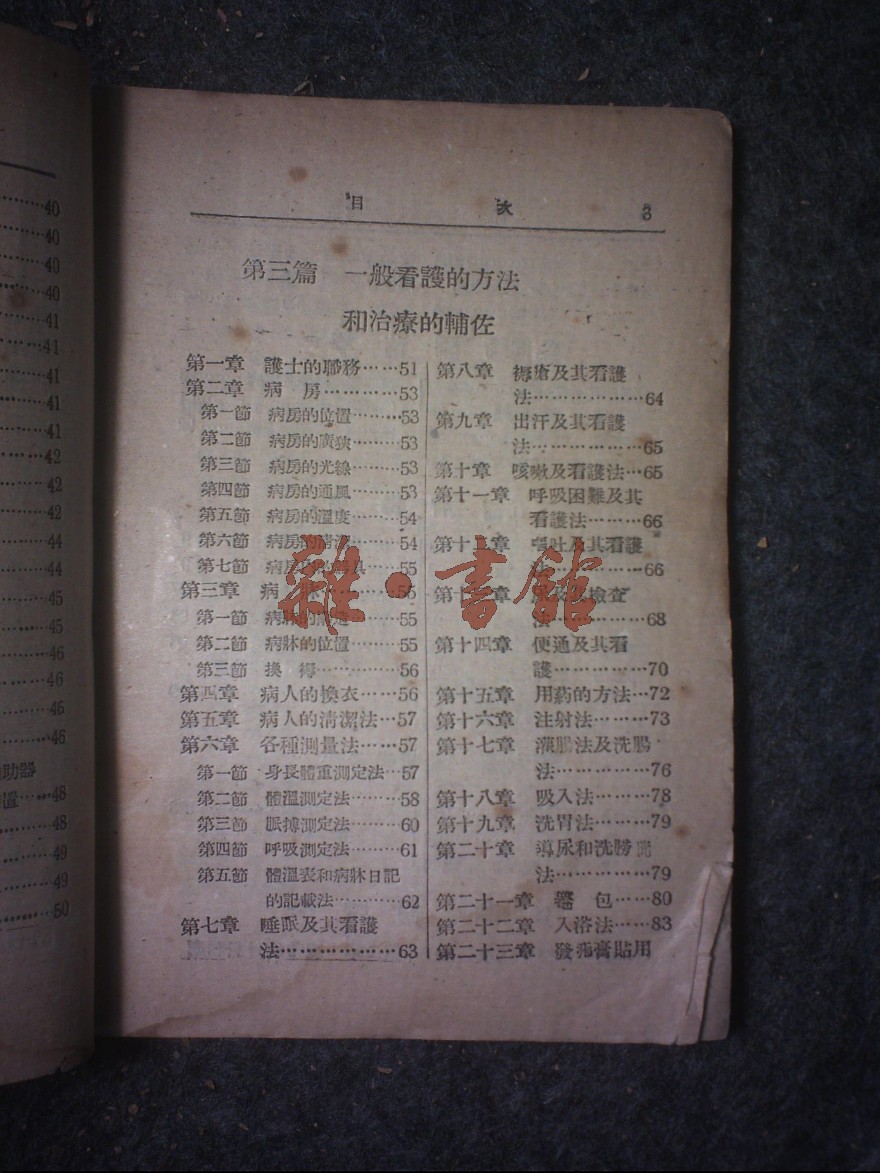 40
40
40
40
41
41
41
41
41
42
42
42
44
44
45
45
46
46
46
46
助器
置……48
48
49
49
50
目 次 3
第三篇 一般看護的方法
和治療的輔佐
第一章 護士的職務……51
第二章 病 房…………53
第一節 病房的位置………53
第二節 病房的廣狹………53
第三節 病房的光線………53
第四節 病房的通風………53
第五節 病房的溫度………54
第六節 病房的清潔………54
第七節 病房 具…55
第三章 病 牀…………55
第一節 病牀的 造………55
第二節 病牀的位置………55
第三節 換 褥……………56
第四章 病人的換衣……56
第五章 病人的清潔法…57
第六章 各種測量法……57
第一節 身長體重測定法…57
第二節 體溫測定法………58
第三節 脈搏測定法………60
第四節 呼吸測定法………61
第五節 體溫表和病牀日記
的記載法…………62
第七章 睡眠及其看護
法………………63
第八章 褥瘡及其看護
法……………64
第九章 出汗及其看護
法……………65
第十章 咳嗽及看護法…65
第十一章 呼吸困難及其
看護法………66
第十二章 嘔吐及其看護
法……………66
第十三章 尿及其檢查
法……………68
第十四章 便通及其看
護……………70
第十五章 用葯的方法…72
第十六章 注射法………73
第十七章 灌腸法及洗腸
法……………76
第十八章 吸入法………78
第十九章 洗胃法………79
第二十章 導尿和洗膀胱
法…………79
第二十一章 包……80
第二十二章 入浴法……83
第二十三章 發泡膏貼用
雜·書館